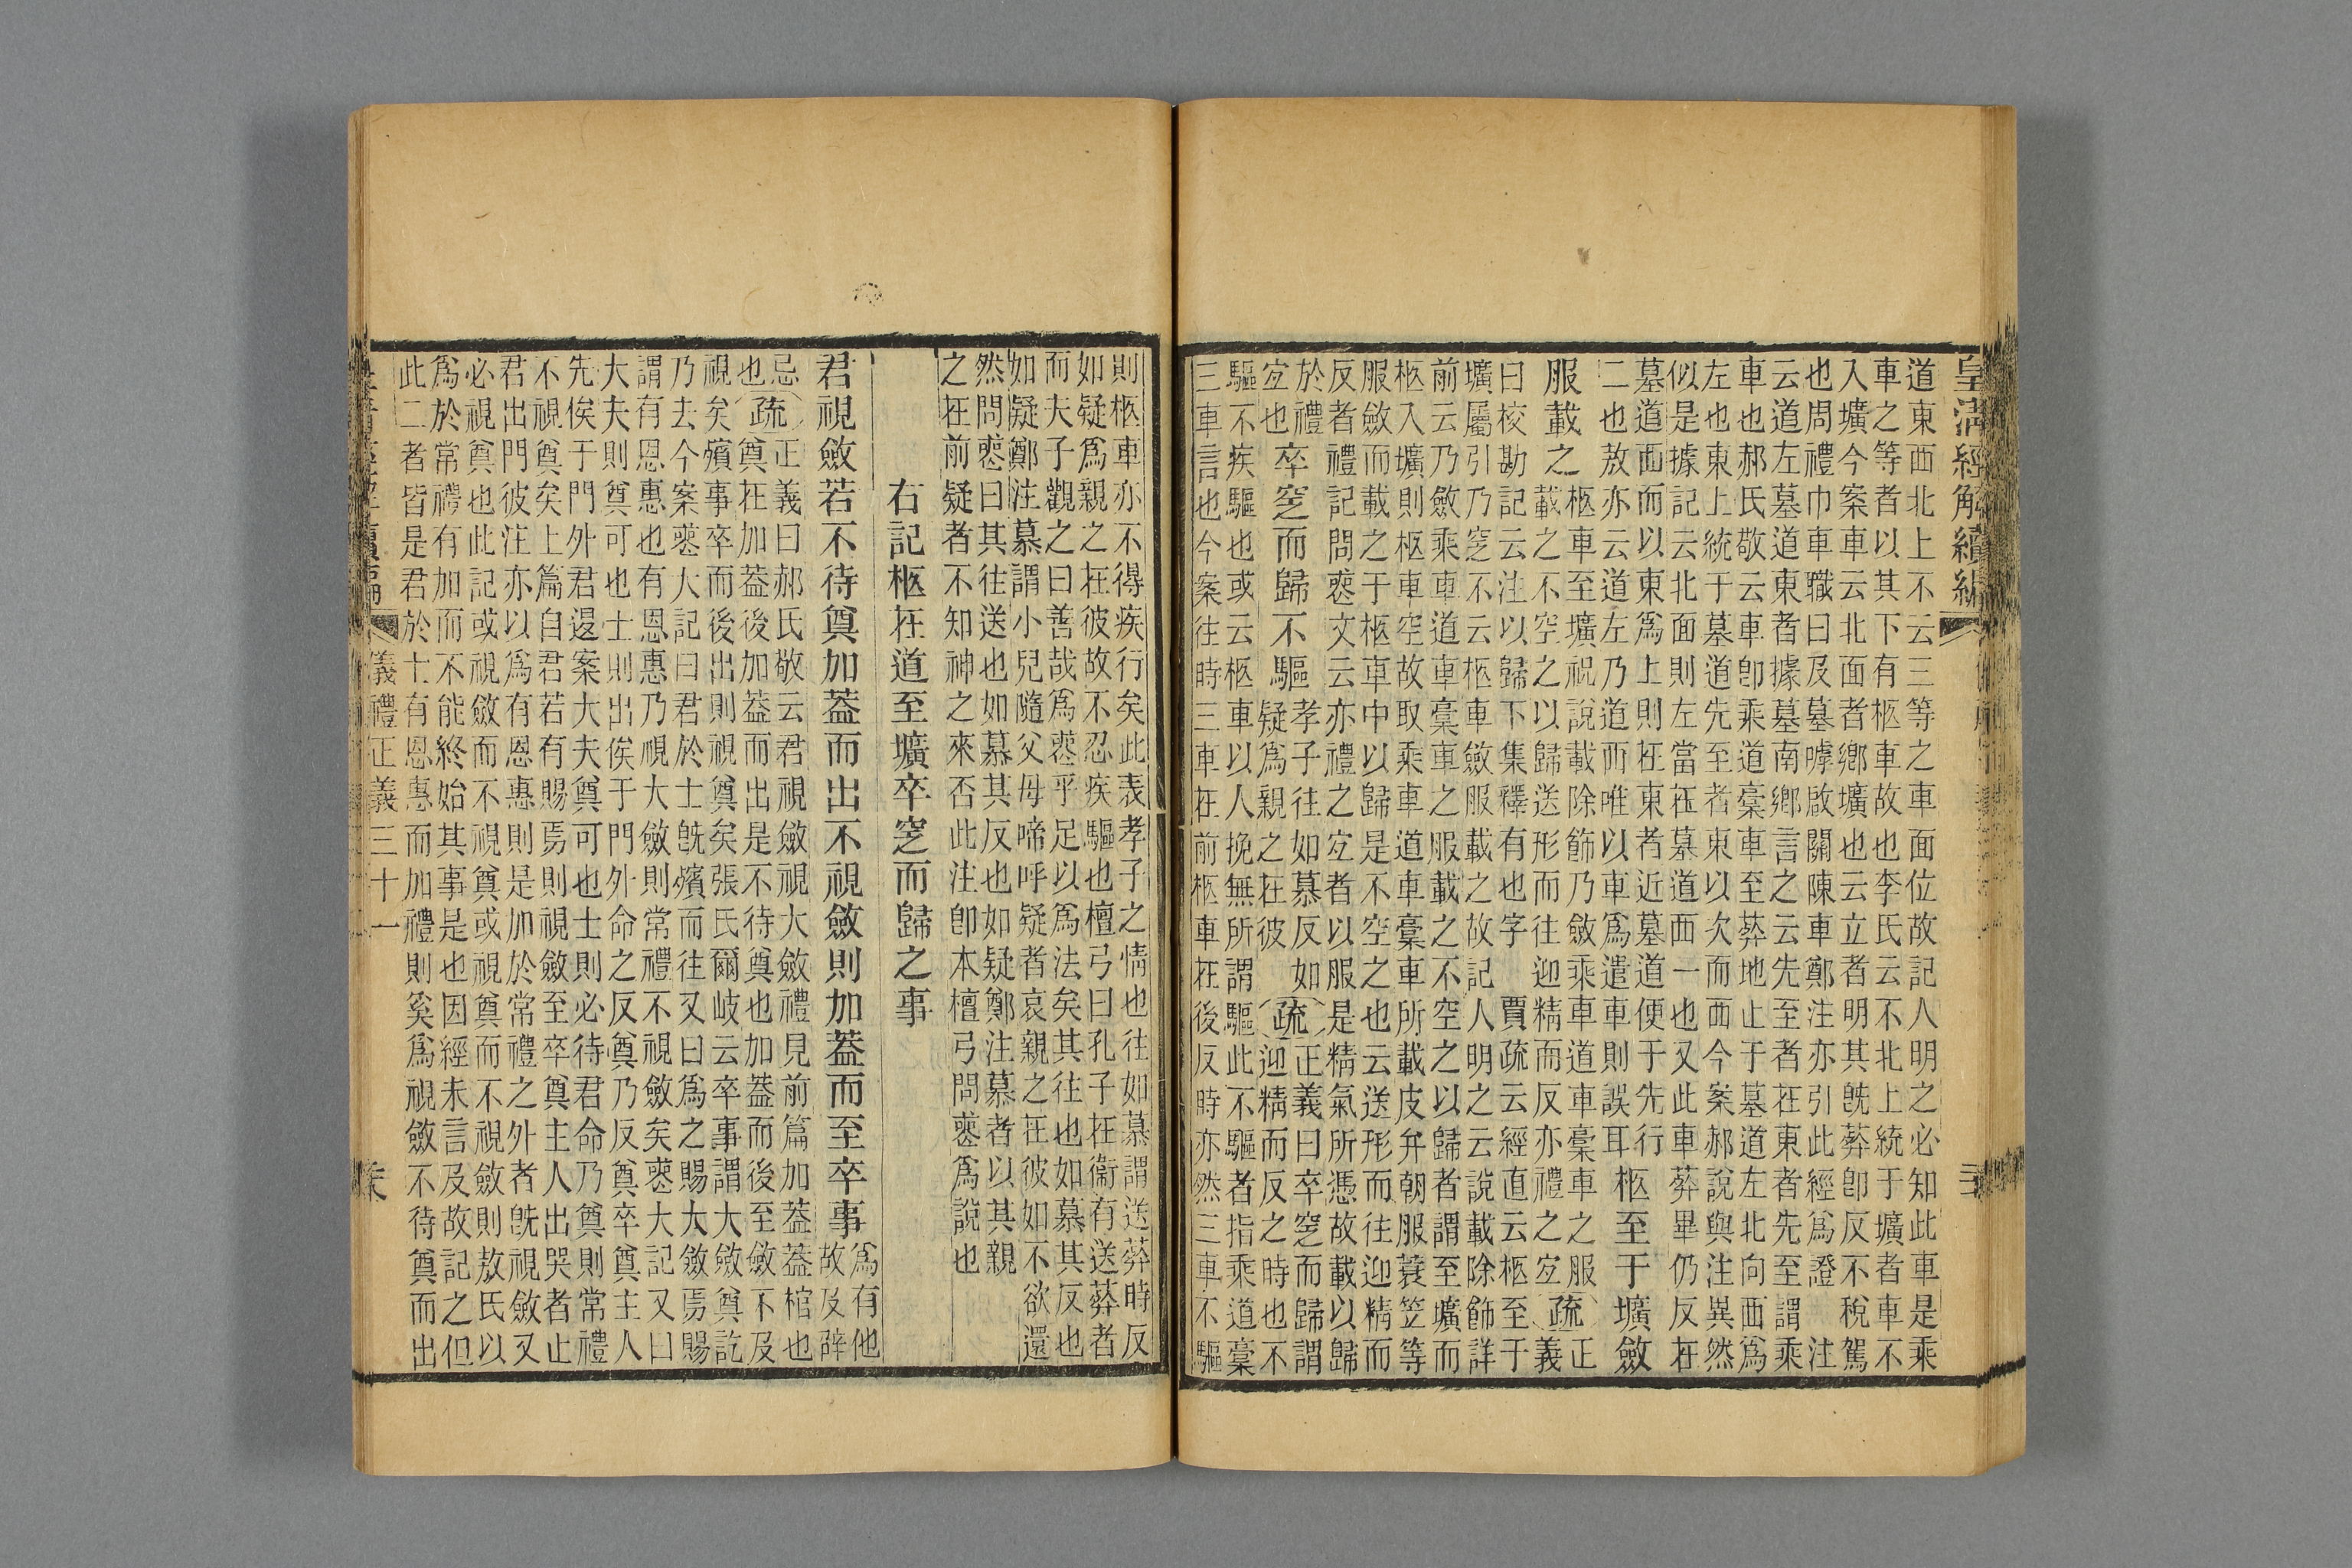 皇清經解續編
道東西北上不云三等之車面位故記人明之必知此車是乘
車之等者以其下有柩車故也李氏云不北上統于壙者車不
入壙今案車云北面者鄉壙也云立者明其旣葬卽反不稅駕
也周禮巾車職曰及墓嘑啟關陳車鄭注亦引此經爲證　注
云道左墓道東者據墓南鄉言之云先至者在東者先至謂乘
車也郝氏敬云車卽乘道槀車至葬地止于墓道左北向西爲
左也東上統于墓道先至者東以次而西今案郝說與注異然
似是據記云北面則左當在墓道西一也又此車葬畢仍反在
墓道西而以東爲上則在東者近墓道便于先行
二也敖亦云道左乃道而唯以車爲遣車則誤耳
柩至于壙斂
服載之
柩車至壙祝說載除飾乃斂乘車道車槀車之服
載之不空之以歸送形而往迎精而反亦禮之宜
疏
正
義
曰校勘記云注以歸下集釋有也字　賈疏云經直云柩至于
壙屬引乃窆不云柩車斂服載之故記人明之云說載除飾詳
前云乃斂乘車道車槀車之服載之不空之以歸者謂至壙而
柩入壙則柩車空故取乘車道車槀車所載皮弁朝服蓑笠等
服斂而載之于柩車中以歸是不空之也云送形而往迎精而
反者禮記問喪文云亦禮之宜者以服是精氣所憑故載以歸
於禮
宜也
卒窆而歸不驅
孝子往如慕反如
疑爲親之在彼
疏
正義曰卒窆而歸謂
迎精而反之時也不
驅不疾驅也或云柩車以人挽無所謂驅此不驅者指乘道槀
三車言也今案往時三車在前柩車在後反時亦然三車不驅
則柩車亦不得疾行矣此表孝子之情也往如慕謂送葬時反
如疑爲親之在彼故不忍疾驅也檀弓曰孔子在衞有送葬者
而夫子觀之曰善哉爲喪乎足以爲法矣其往也如慕其反也
如疑鄭注慕謂小兒隨父母啼呼疑者哀親之在彼如不欲還
然問喪曰其往送也如慕其反也如疑鄭注慕者以其親
之在前疑者不知神之來否此注卽本檀弓問喪爲說也
右記柩在道至壙卒窆而歸之事
君視斂若不待奠加蓋而出不視斂則加蓋而至卒事
爲有他
故及辟
忌
也
疏
正義曰郝氏敬云君視斂視大斂禮見前篇加蓋蓋棺也
奠在加蓋後加蓋而出是不待奠也加蓋而後至斂不及
視矣殯事卒而後出則視奠矣張氏爾岐云卒事謂大斂奠訖
乃去今案喪大記曰君於士旣殯而往又曰爲之賜大斂焉賜
謂有恩惠也有恩惠乃視大斂則常禮不視斂矣喪大記又曰
大夫則奠可也士則出俟于門外命之反奠乃反奠卒奠主人
先俟于門外君退案大夫奠可也士則必待君命乃奠則常禮
不視奠矣上篇自君若有賜焉則視斂至卒奠主人出哭者止
君出門彼注亦以爲有恩惠則是加於常禮之外者旣視斂又
必視奠也此記或視斂而不視奠或視奠而不視斂則敖氏以
爲於常禮有加而不能終始其事是也因經未言及故記之但
此二者皆是君於士有恩惠而加禮則奚爲視斂不待奠而出
儀禮正義三十一